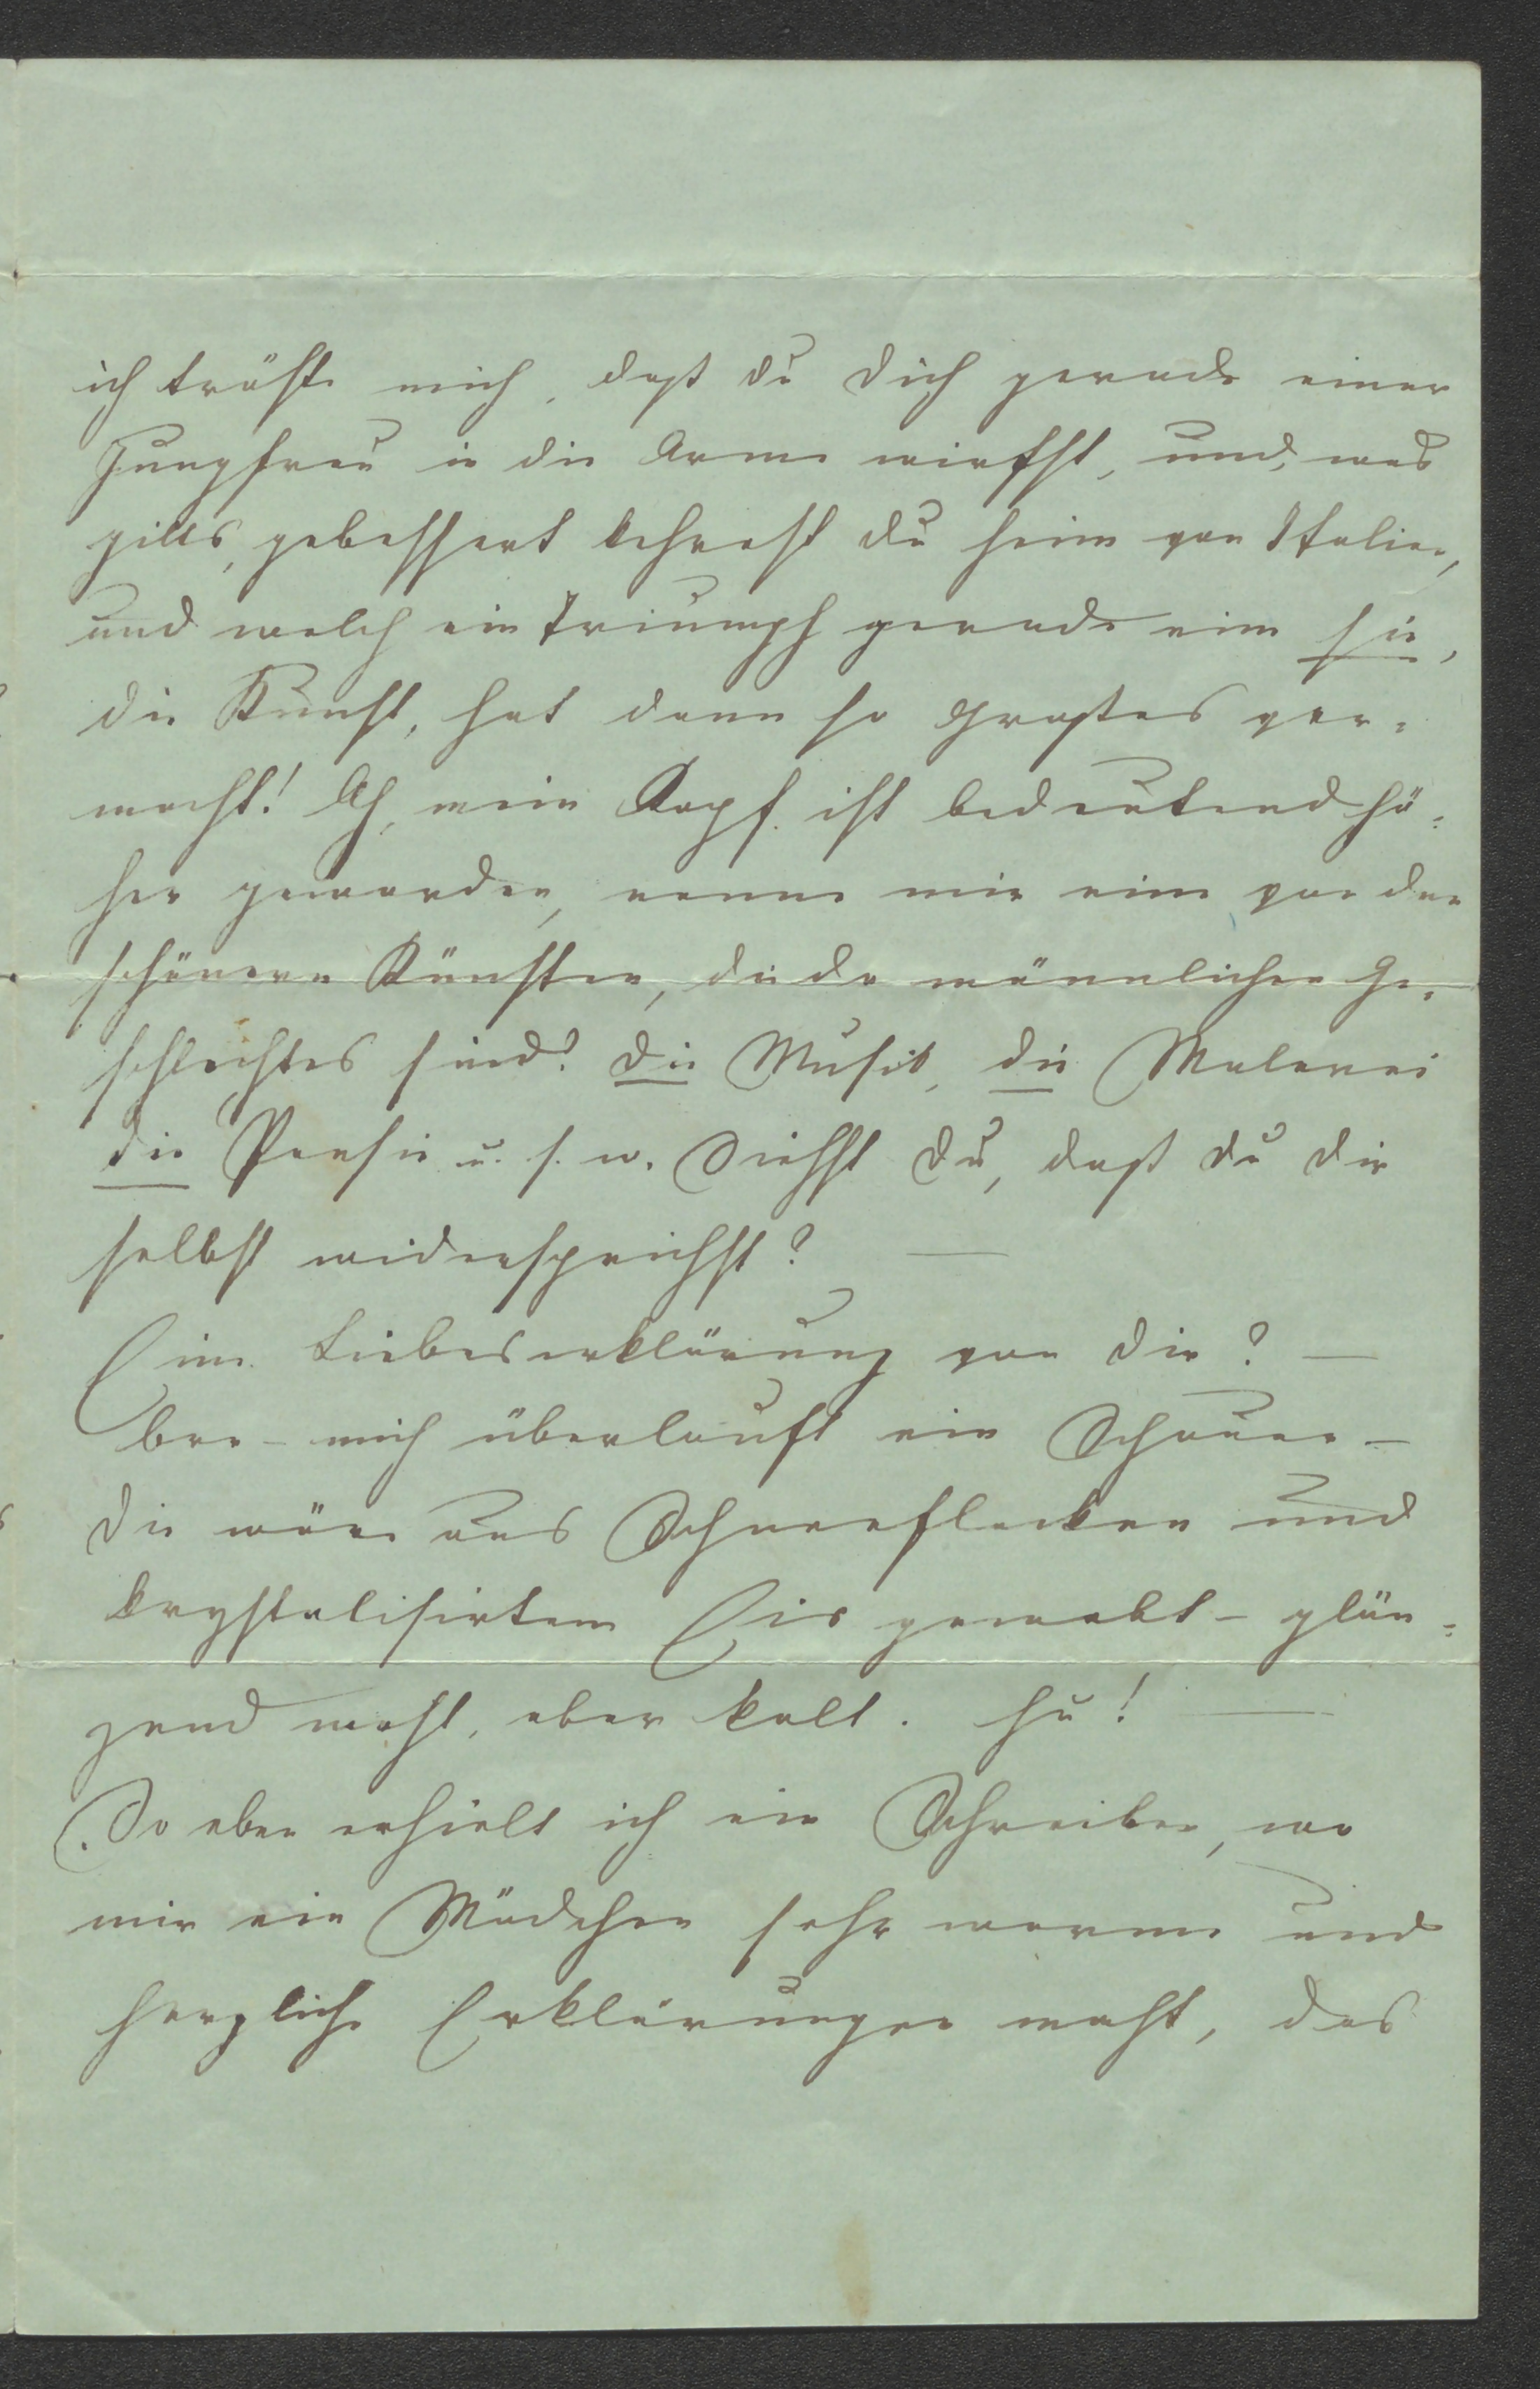 ich tröste mich, daß du dich gerade einer
Jungfrau in die Arme wirfst, und, was
gilts, gebessert kehrest du heim von Italien,
und welch ein Triumph gerade eine sie,
die Kunst, hat dann so Großes ver-
mocht! Ah, mein Kopf ist bedeutend hö-
her geworden, nenne mir eine von den
schönern Künsten, die da männlichen Ge-
schlechtes sind? die Musik, die Malerei
die Poesie u. s. w. Siehst du, daß du dir
selbst widersprichst? —
Eine Liebeserklärung von dir? —
brr – mich überlauft ein Schauer –
die wäre aus Schneeflocken und
krystalisirtem Eis gewebt – glän-
zend wohl, aber kalt. hu! —
So eben erhielt ich ein Schreiben, wo
mir ein Mädchen sehr warme und
herzliche Erklärungen macht, das